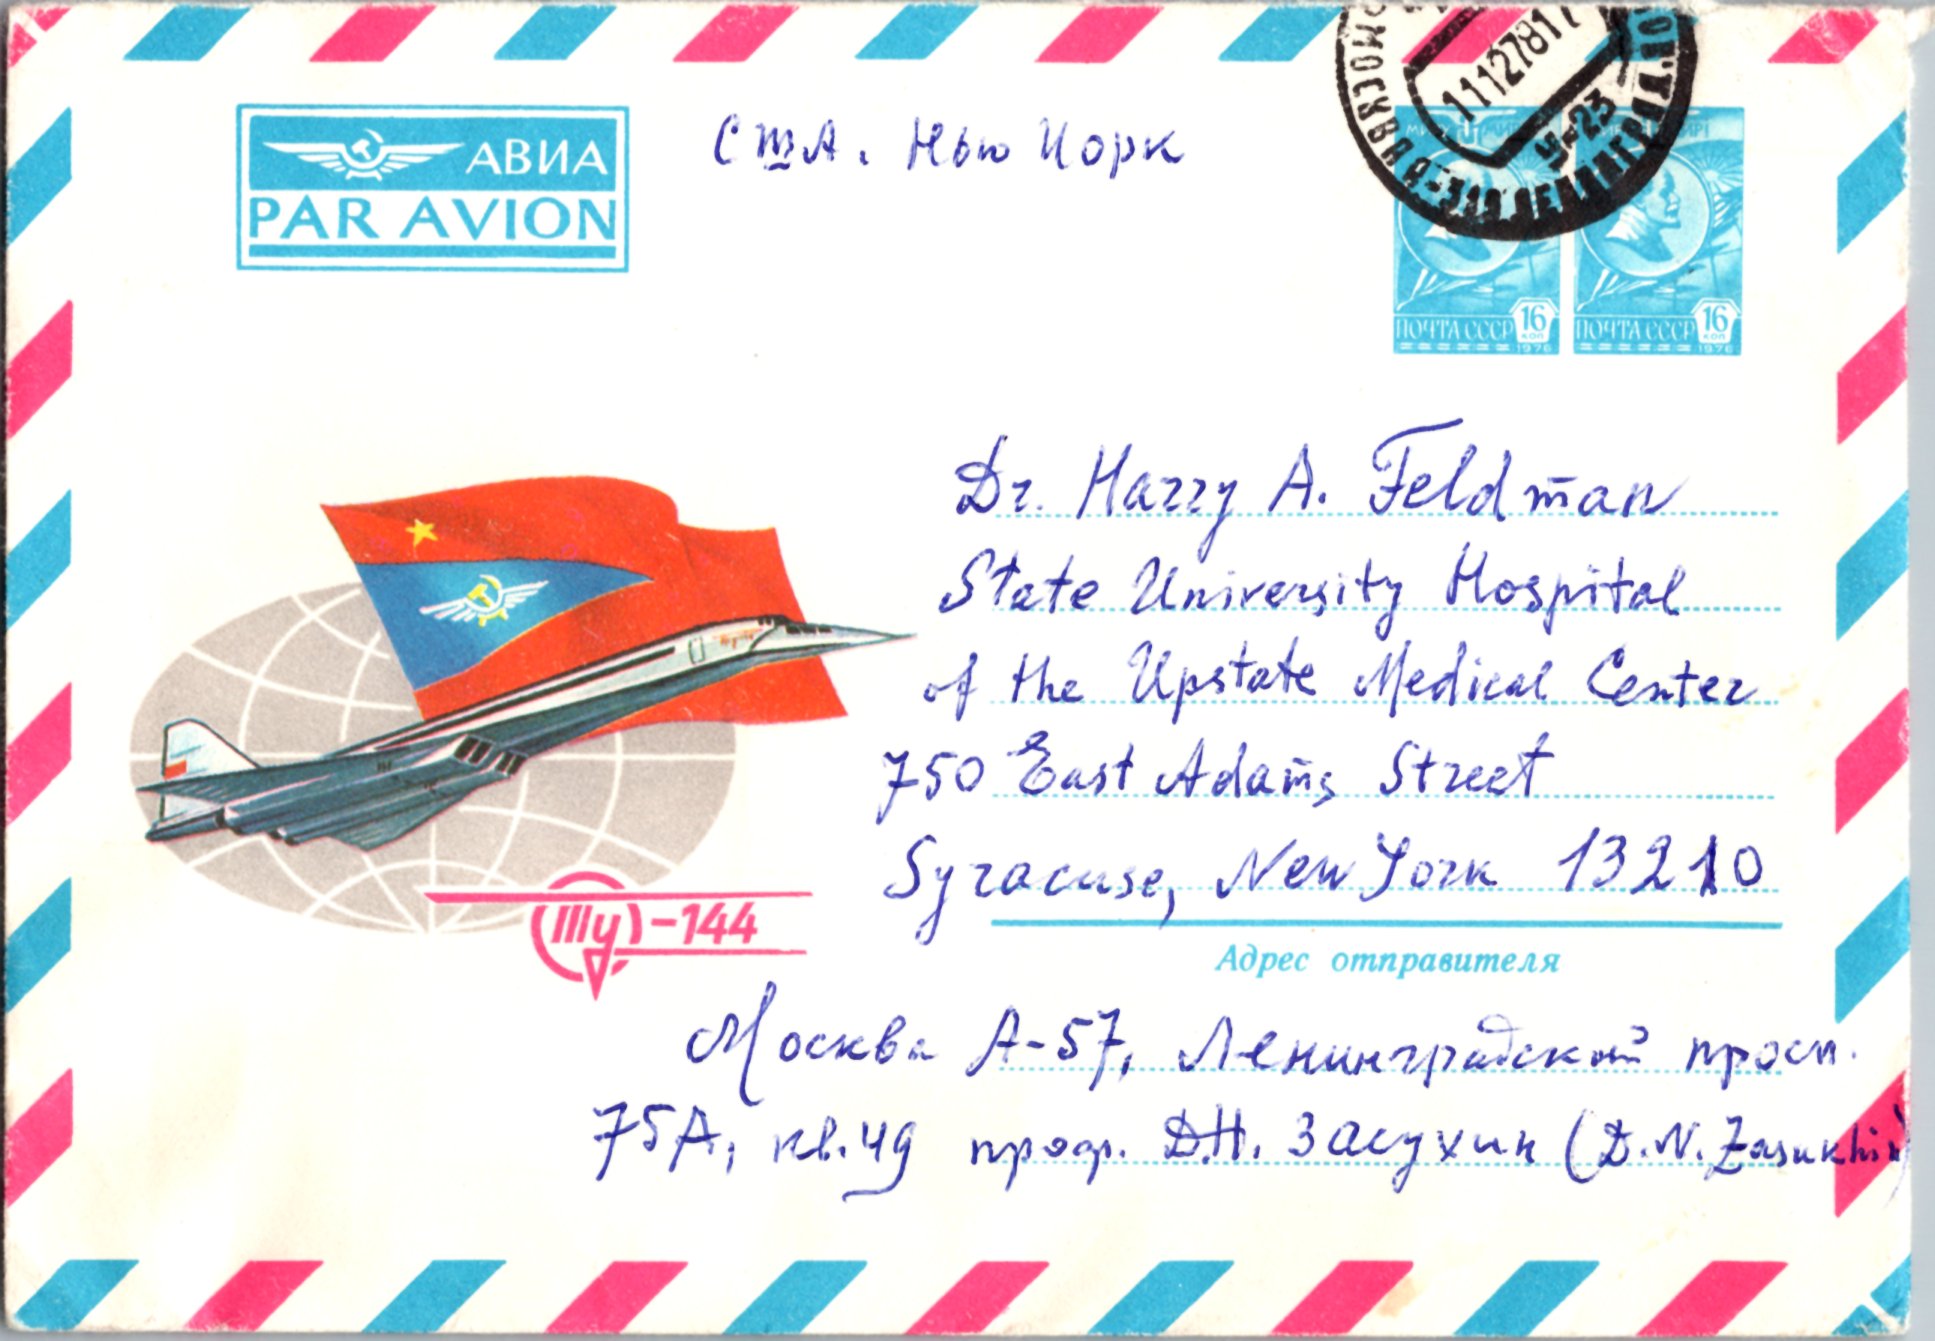 АВИА
PAR AVION
США. Нью Йорк
11127817
У-23
ПОЧТА СССР 16 КОП
1976
ПОЧТА СССР 16 КОП
1976
Dr. Harry A. Feldman
State University Hospital
of the Upstate Medical Center
750 East Adams Street
Syracuse, New York 13210
Ту-144
Адрес отправителя
Москва А-57, Ленинградский просп.
75А, кв.49 проф. Д.Н. Засухин (D.N. Zasukhin)